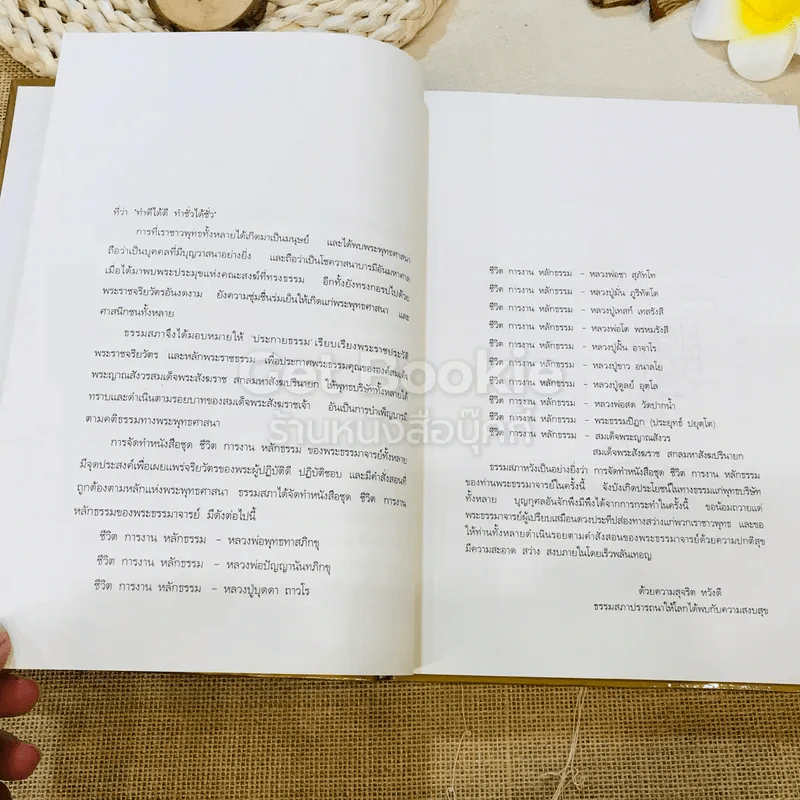 ที่ว่า "ทำดีได้ดี ทำชั่วได้ชั่ว"
การที่เราชาวพุทธทั้งหลายได้เกิดมาเป็นมนุษย์ และได้พบพระพุทธศาสนา
ถือว่าเป็นบุคคลที่มีบุญวาสนาอย่างยิ่ง และถือว่าเป็นโชควาสนาบารมีอันมหาศาล
เมื่อได้มาพบพระประมุขแห่งคณะสงฆ์ที่ทรงธรรม อีกทั้งยังทรงกอรปไปด้วย
พระราชจริยวัตรอันงดงาม ยังความชุ่มชื่นร่มเย็นให้เกิดแก่พระพุทธศาสนา และ
ศาสนิกชนทั้งหลาย
ธรรมสภาจึงได้มอบหมายให้ 'ประกายธรรม' เรียบเรียงพระราชประวัติ
พระราชจริยวัตร และหลักพระราชธรรม เพื่อประกาศพระธรรมคุณขององค์สมเด็จ
พระญาณสังวรสมเด็จพระสังฆราช สกลมหาสังฆปรินายก ให้พุทธบริษัททั้งหลายได้
ทราบและดำเนินตามรอยบาทของสมเด็จพระสังฆราชเจ้า อันเป็นการบำเพ็ญบารมี
ตามคติธรรมทางพระพุทธศาสนา
การจัดทำหนังสือชุด ชีวิต การงาน หลักธรรม ของพระธรรมาจารย์ทั้งหลาย
มีจุดประสงค์เพื่อเผยแพร่จริยวัตรของพระผู้ปฏิบัติดี ปฏิบัติชอบ และมีคำสั่งสอนที่
ถูกต้องตามหลักแห่งพระพุทธศาสนา ธรรมสภาได้จัดทำหนังสือชุด ชีวิต การงาน
หลักธรรมของพระธรรมาจารย์ มีดังต่อไปนี้
ชีวิต การงาน หลักธรรม - หลวงพ่อพุทธทาสภิกขุ
ชีวิต การงาน หลักธรรม - หลวงพ่อปัญญานันทภิกขุ
ชีวิต การงาน หลักธรรม - หลวงปู่บุดดา ถาวโร
ชีวิต การงาน หลักธรรม - หลวงพ่อชา สุภัทโท
ชีวิต การงาน หลักธรรม - หลวงปู่มั่น ภูริทัตโต
ชีวิต การงาน หลักธรรม - หลวงปู่เทสก์ เทสรังสี
ชีวิต การงาน หลักธรรม - หลวงพ่อโต พรหมรังสี
ชีวิต การงาน หลักธรรม - หลวงปู่ฝั้น อาจาโร
ชีวิต การงาน หลักธรรม - หลวงปู่ขาว อนาลโย
ชีวิต การงาน หลักธรรม - หลวงปู่ดูลย์ อตุโล
ชีวิต การงาน หลักธรรม - หลวงพ่อสด วัดปากน้ำ
ชีวิต การงาน หลักธรรม - พระธรรมปิฎก (ประยุทธ์ ปยุตฺโต)
ชีวิต การงาน หลักธรรม - สมเด็จพระญาณสังวร
สมเด็จพระสังฆราช สกลมหาสังฆปรินายก
ธรรมสภาหวังเป็นอย่างยิ่งว่า การจัดทำหนังสือชุด ชีวิต การงาน หลักธรรม
ของท่านพระธรรมาจารย์ในครั้งนี้ จังบังเกิดประโยชน์ในทางธรรมแก่พุทธบริษัท
ทั้งหลาย บุญกุศลอันจักพึงมีพึงได้จากการกระทำในครั้งนี้ ขอน้อมถวายแด่
พระธรรมาจารย์ผู้เปรียบเสมือนดวงประทีปส่องทางสว่างแก่พวกเราชาวพุทธ และขอ
ให้ท่านทั้งหลายดำเนินรอยตามคำสั่งสอนของพระธรรมาจารย์ด้วยความปกติสุข
มีความสะอาด สว่าง สงบภายในโดยเร็วพลันเทอญ
ด้วยความสุจริต หวังดี
ธรรมสภาปรารถนาให้โลกได้พบกับความสงบสุข
Get Bookie
ร้านหนังสือบุ๊คกี้